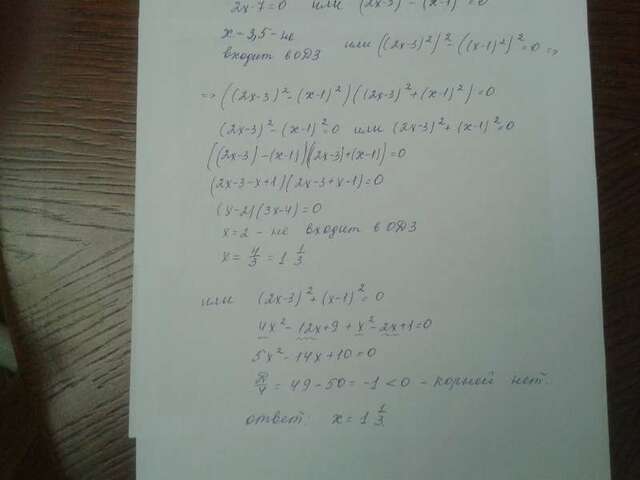 2x-7=0 или (2x-3)⁴-(x-1)⁴=0
x=3,5 - не
входит в ОДЗ или ((2x-3)²)²-((x-1)²)²=0 =>
=> ((2x-3)²-(x-1)²)((2x-3)²+(x-1)²)=0
(2x-3)²-(x-1)²=0 или (2x-3)²+(x-1)²=0
((2x-3)-(x-1))((2x-3)+(x-1))=0
(2x-3-x+1)(2x-3+x-1)=0
(x-2)(3x-4)=0
x=2 - не входит в ОДЗ
x=4/3=1 1/3
или (2x-3)²+(x-1)²=0
4x²-12x+9+x²-2x+1=0
5x²-14x+10=0
D/4=49-50=-1<0 - корней нет.
ответ: x=1 1/3